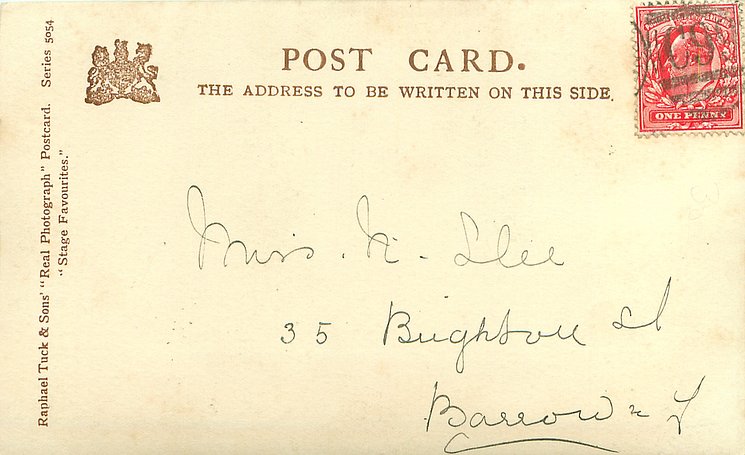 POST CARD.
THE ADDRESS TO BE WRITTEN ON THIS SIDE.
ONE PENNY
Raphael Tuck & Sons' "Real Photograph" Postcard. Series 5054
"Stage Favourites."
Miss. N.
35 Brighton St
Barrow